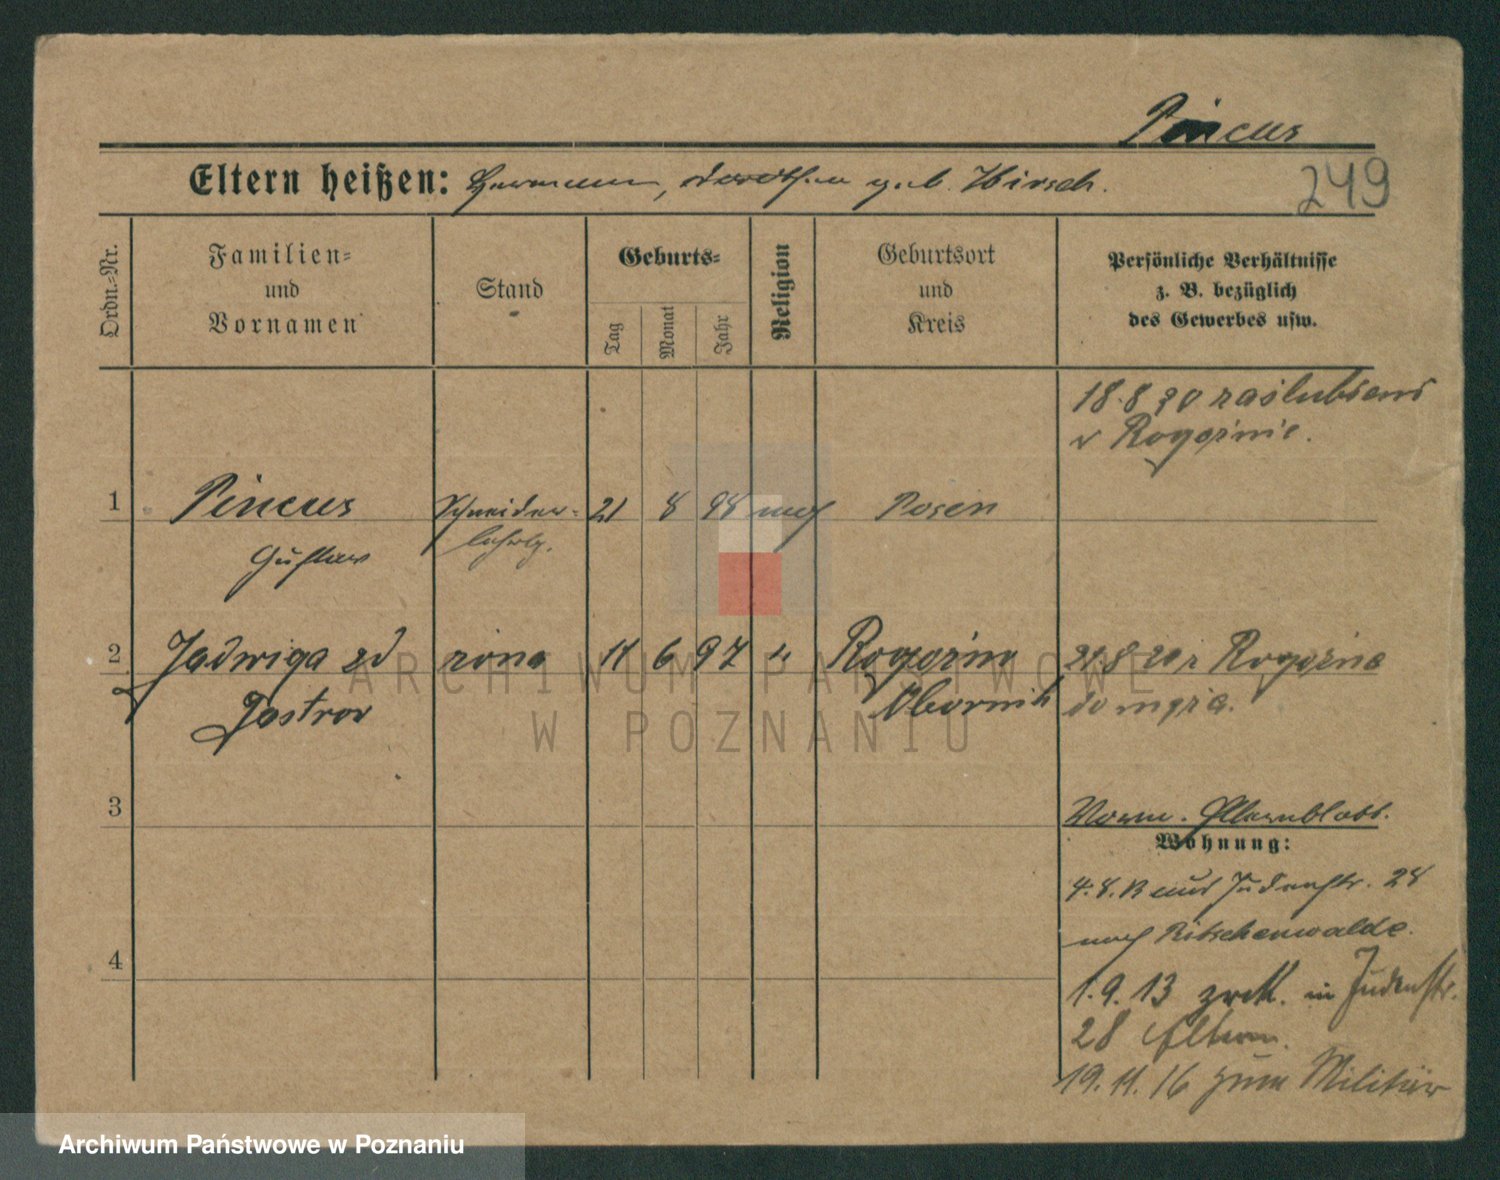 Pincus
249
Eltern heißen: Hermann, Dorothea geb. Hirsch.
Ordn.-Nr.
Familien- und Vornamen
Stand
Geburts-
Tag
Monat
Jahr
Religion
Geburtsort und Kreis
Persönliche Verhältnisse z. B. bezüglich des Gewerbes usw.
18.8 20 zaślubieni
w Rogoźnie.
1 Pincus Schneider- 21 8 98 mos Posen
Gustav lehrlg.
2 Jadwiga zd żona 11 6 97 " Rogoźno 21.8.20 z Rogoźna
Jastrow Oborniki do męża.
3
Vorm. Elternblatt.
Wohnung:
4.8.13 aus Judenstr. 28
nach Ritschenwalde.
4
1.9.13 zrck. in Judenstr.
28 Eltern.
19.11.16 zum Militär
ARCHIWUM PAŃSTWOWE
W POZNANIU
Archiwum Państwowe w Poznaniu